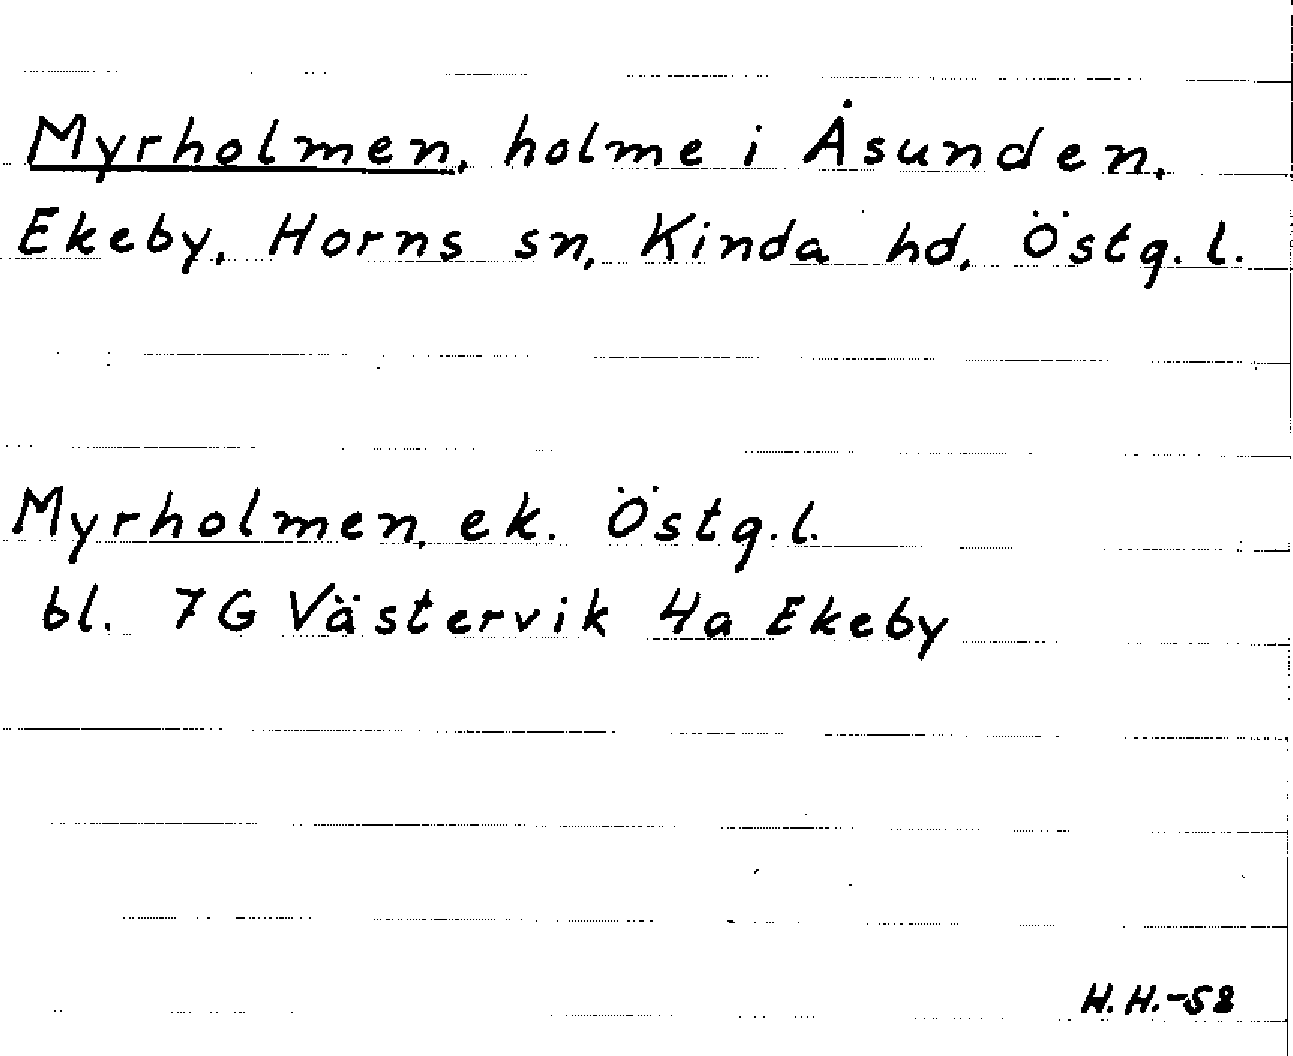 Myrholmen, holme i Åsunden,
Ekeby, Horns sn, Kinda hd, Östg. l.
Myrholmen, ek. Östg. l.
bl. 7G Västervik 4a Ekeby
H.H.-52